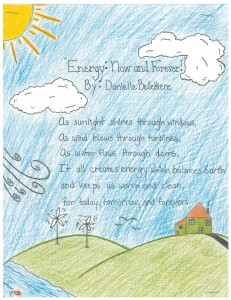 "Energy: Now and Forever"
By: Danielle Bellettiere
As sunlight shines through windows,
As wind blows through turbines,
As water flows through dams,
It all creates energy, which balances Earth
and keeps us warm and clean,
for today, tomorrow, and forever!